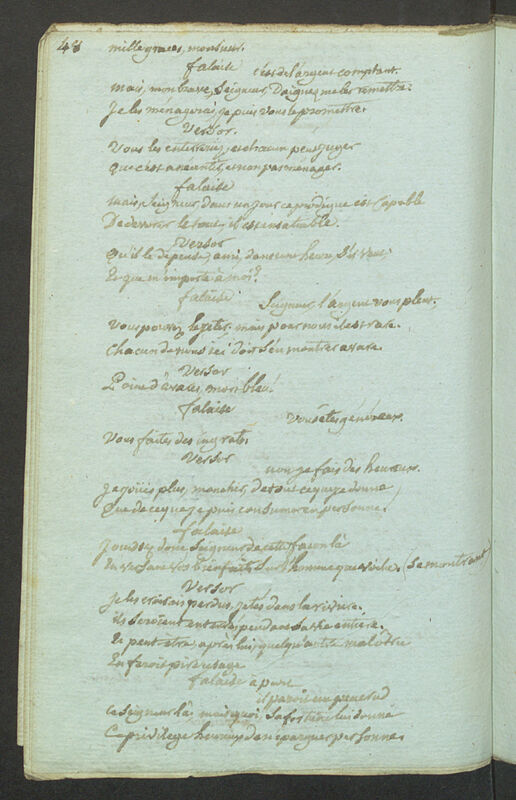 48 mille graces, monsieur.
falaise
c'est de l'argent comptant.
mais, mon brave Seigneur, Daignez me les remettre.
Je les menagerai, je puis vous le promettre.
Versor.
Vous les enterreriez, et chacun peut juger
que c'est anéantir, et non pas ménager.
falaise
mais Seigneur dans un jour ce prodigue est capable
De devorer le tout, il est insatiable.
Versor
qu'il le dépense, ami, dans une heure, S'il veut,
Et que m'importe à moi?
falaise
Seigneur, l'argent vous pleut.
Vous pouvez le jeter. mais pour nous il est rare.
chacun de nous ici doit s'en montrer avare.
Versor
Point d'avares, morbleu!
falaise
Vous êtes généreux.
Vous faites des ingrats.
Versor
non je fais des heureux.
Je jouis plus, mon cher, de tout ce que je donne
Que de ce que je puis consumer en personne.
falaise
Jouissez donc Seigneur de cette façon là
En versant vos bienfaits sur l'homme que voilà. (Se montrant
Versor
Je les croirais perdus, jetés dans la rivière.
ils seroient enterrés pendant sa vie entière.
Et peut etre, après lui, quelqu'autre malôtru
En feroit pire usage
falaise à part
il paroît un peu
ce Seigneur là, mais quoi, sa fortune lui donne
Ce privilege heureux de n'epargner personne.